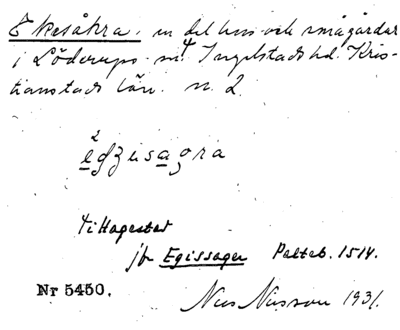 Ekesåkra. en del hus och smågårdar
i Löderups sn Ingelstads hd. Kris-
tianstads län. n. 2.
2
ẹgzusagra
t. Hagestad
jfr Egissager Palteb. 1514.
Nr 5450.
Nils Nilsson 1931.